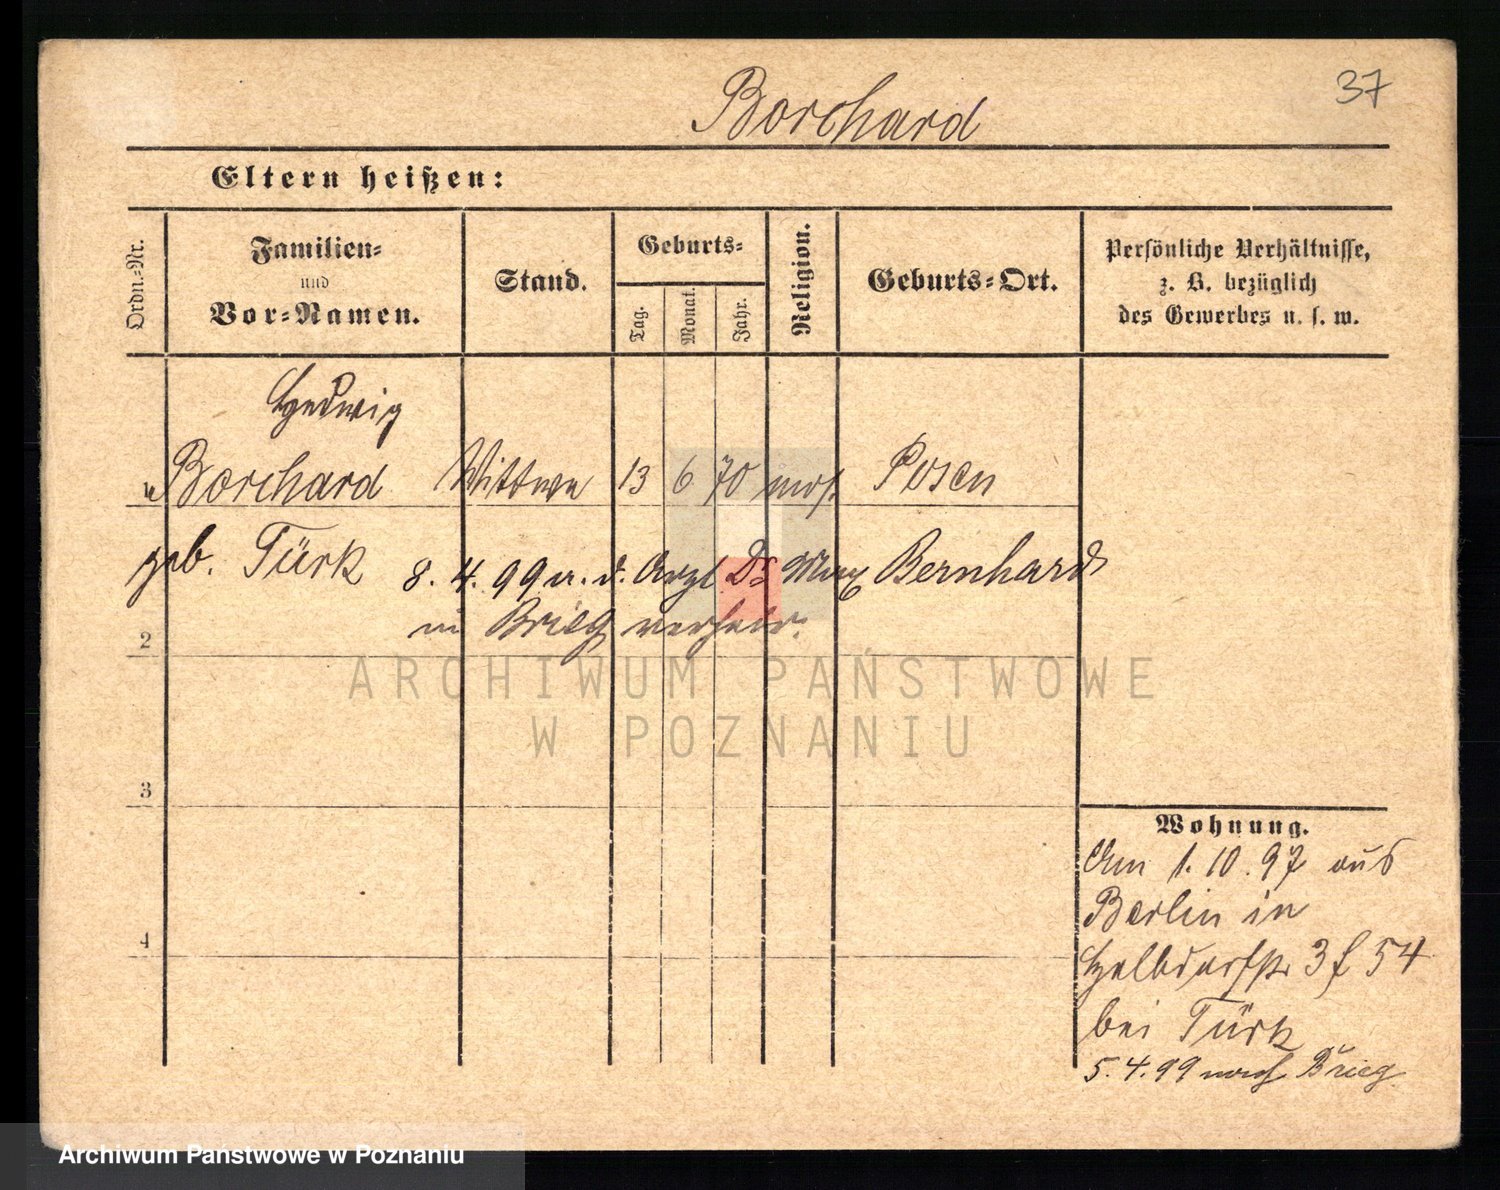 Borchard
37
Eltern heißen:
Ordn.-Nr.
Familien-
und
Vor-Namen.
Stand.
Geburts-
Tag.
Monat.
Jahr.
Religion.
Geburts-Ort.
Persönliche Verhältnisse,
z. B. bezüglich
des Gewerbes u. s. w.
Hedwig
Borchard Wittwe 13 6 70 mos. Posen
geb. Türk
8. 4. 99 a. d. Arzt Dr Max Bernhard
in Brieg verheir.
2
3
4
Wohnung.
Am 1. 10. 97 aus
Berlin in
Halbdorfstr 3 f 54
bei Türk
5. 4. 99 nach Brieg
ARCHIWUM PAŃSTWOWE
W POZNANIU
Archiwum Państwowe w Poznaniu